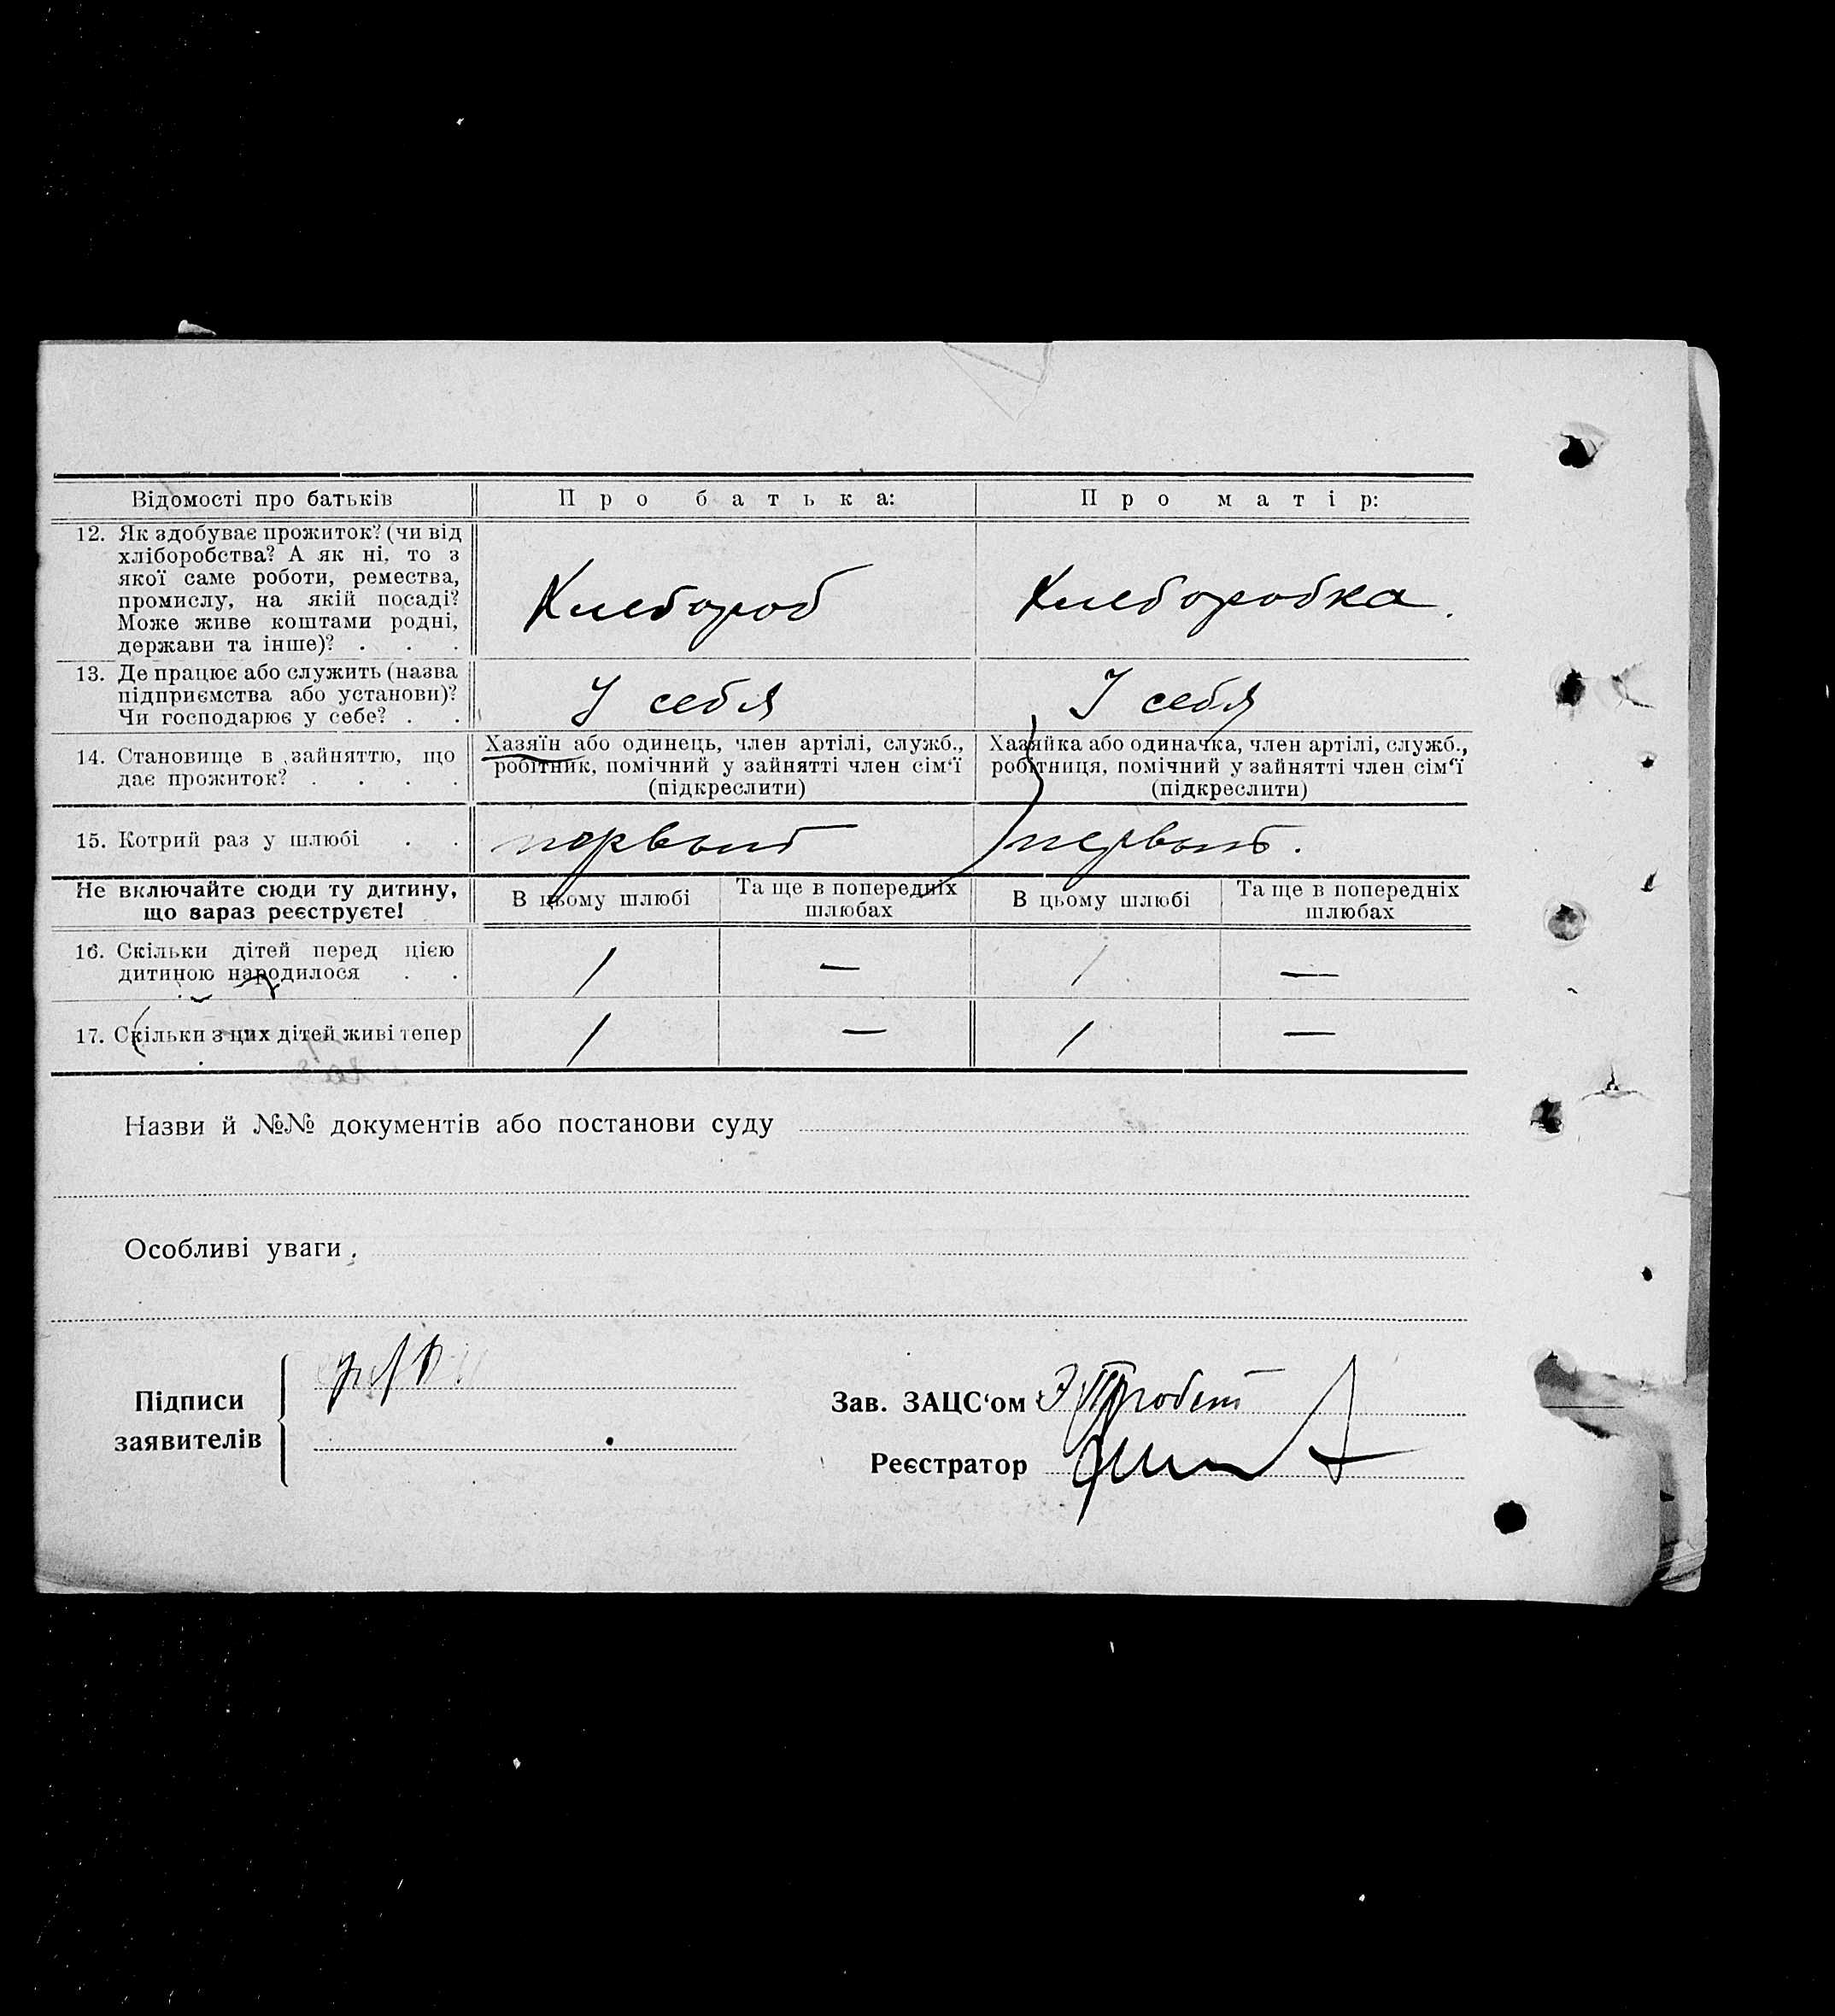 Відомості про батьків
Про батька:
Про матір:
12. Як здобуває прожиток? (чи від
хліборобства? А як ні, то з
якої саме роботи, ремества,
промислу, на якій посаді?
Може живе коштами родні,
держави та інше)? . . .
Хлебороб
Хлеборобка.
13. Де працює або служить (назва
підприємства або установи)?
Чи господарює у себе? . .
У себя
У себя
14. Становище в зайняттю, що
дає прожиток? . . . .
Хазяїн або одинець, член артілі, служб.,
робітник, помічний у зайнятті член сім‘ї
(підкреслити)
Хазяйка або одиначка, член артілі, служб.,
робітниця, помічний у зайнятті член сім‘ї
(підкреслити)
15. Котрий раз у шлюбі . .
первый
первый.
Не включайте сюди ту дитину,
що зараз реєструєте!
В цьому шлюбі
Та ще в попередніх
шлюбах
В цьому шлюбі
Та ще в попередніх
шлюбах
16. Скільки дітей перед цією
дитиною народилося . .
1 — 1 —
17. Скільки з цих дітей живі тепер
1 — 1 —
Назви й №№ документів або постанови суду
Особливі уваги
Підписи
заявителів
Зав. ЗАЦС‘ом
Реєстратор